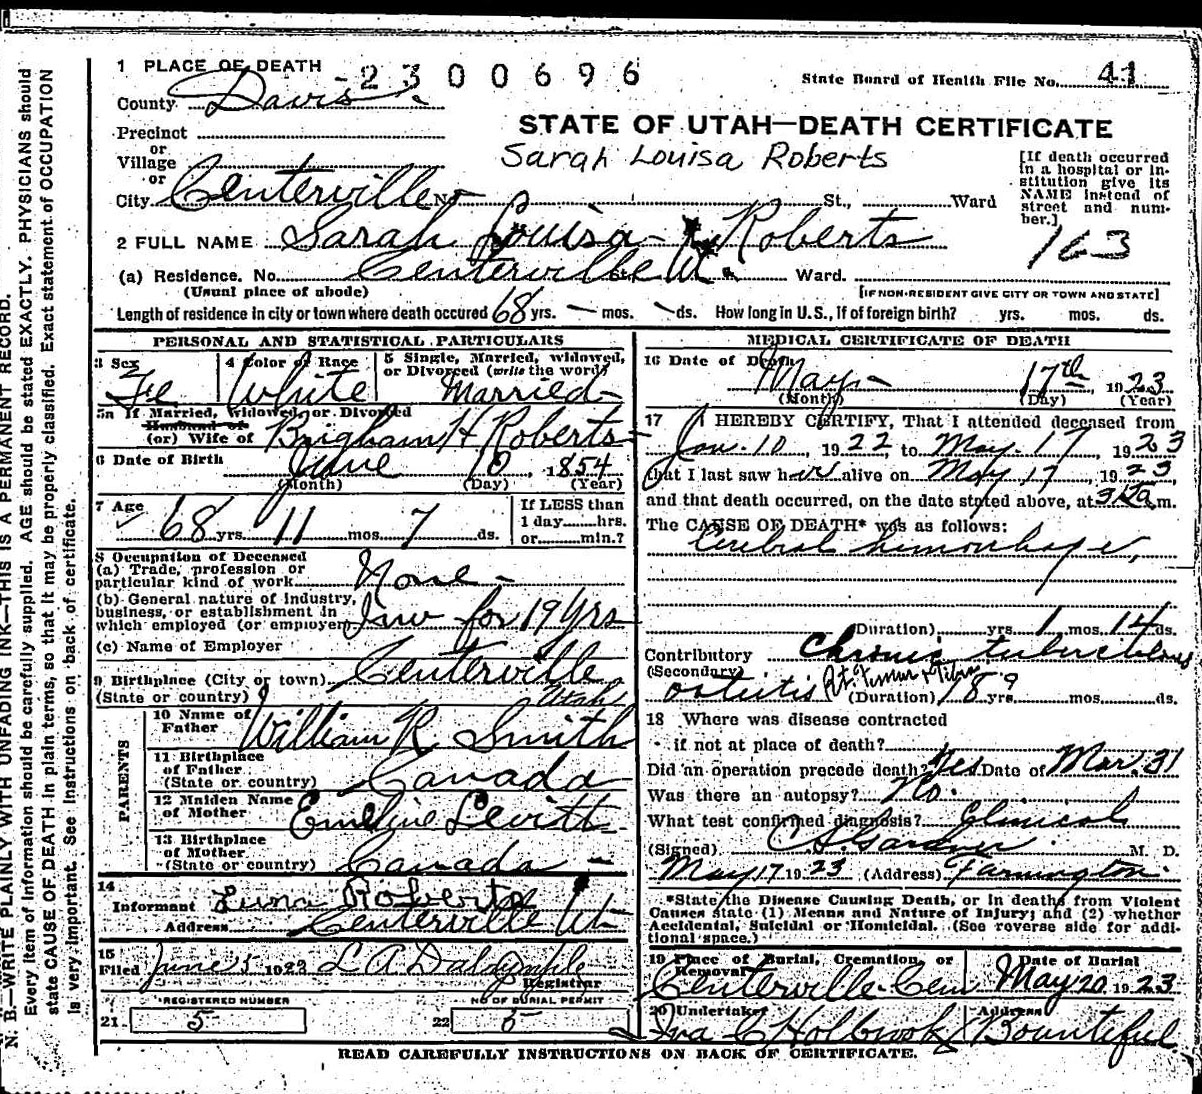 1 PLACE OF DEATH -2300696 State Board of Health File No. 41
County Davis
STATE OF UTAH—DEATH CERTIFICATE
Precinct
or
Village
Sarah Louisa Roberts
or
City Centerville No. St., Ward
[If death occurred
in a hospital or in-
stitution give its
NAME instead of
street and num-
ber.]
163
2 FULL NAME Sarah Louisa Roberts
(a) Residence. No. Centerville St. Ut. Ward.
(Usual place of abode) [IF NON-RESIDENT GIVE CITY OR TOWN AND STATE]
Length of residence in city or town where death occured 68 yrs. — mos. — ds. How long in U.S., if of foreign birth? yrs. mos. ds.
PERSONAL AND STATISTICAL PARTICULARS
3 Sex 4 Color or Race 5 Single, Married, widowed,
or Divorced (write the word)
Fe White Married
5a If Married, widowed, or Divorced
Husband of
(or) Wife of Brigham H Roberts
6 Date of Birth June 10 1854
(Month) (Day) (Year)
7 Age 68 yrs. 11 mos. 7 ds.
If LESS than
1 day hrs.
or min.?
8 Occupation of Deceased
(a) Trade, profession or
particular kind of work None -
(b) General nature of industry,
business, or establishment in
which employed (or employer) Inv for 19 yrs
(c) Name of Employer
9 Birthplace (City or town) Centerville
(State or country) Utah
PARENTS
10 Name of
Father William R Smith
11 Birthplace
of Father
(State or country) Canada
12 Maiden Name
of Mother Emeline Levitt
13 Birthplace
of Mother
(State or country) Canada -
14
Informant Luna Roberts
Address Centerville Ut
15
Filed June 5 1923 L A Dalrymple
Registrar
REGISTERED NUMBER NO OF BURIAL PERMIT
21 5 22 5
MEDICAL CERTIFICATE OF DEATH
16 Date of Death
May - 17th 1923
(Month) (Day) (Year)
17 I HEREBY CERTIFY, That I attended deceased from
Jan. 10, 1922, to May. 17, 1923
that I last saw her alive on May 17, 1923
and that death occurred, on the date stated above, at m.
The CAUSE OF DEATH* was as follows:
Cerebral hemorrhage,
(Duration) yrs. 1 mos. 14 ds.
Contributory Chronic tuberculous
(Secondary) osteitis Rt. femur (Duration) yrs. mos. ds.
18 Where was disease contracted
if not at place of death?
Did an operation precede death? Yes Date of Mar. 31
Was there an autopsy? No.
What test confirmed diagnosis? Clinical
(Signed) Gardner M. D.
May 17 1923 (Address) Farmington.
*State the Disease Causing Death, or in deaths from Violent
Causes state (1) Means and Nature of Injury; and (2) whether
Accidental, Suicidal or Homicidal. (See reverse side for addi-
tional space.)
19 Place of Burial, Cremation, or
Removal Date of Burial
Centerville Cem May 20 1923
20 Undertaker Address
Iva C Holbrook Bountiful
READ CAREFULLY INSTRUCTIONS ON BACK OF CERTIFICATE.
N. B.—WRITE PLAINLY WITH UNFADING INK—THIS IS A PERMANENT RECORD.
Every item of information should be carefully supplied. AGE should be stated EXACTLY. PHYSICIANS should
state CAUSE OF DEATH in plain terms, so that it may be properly classified. Exact statement of OCCUPATION
is very important. See Instructions on back of certificate.